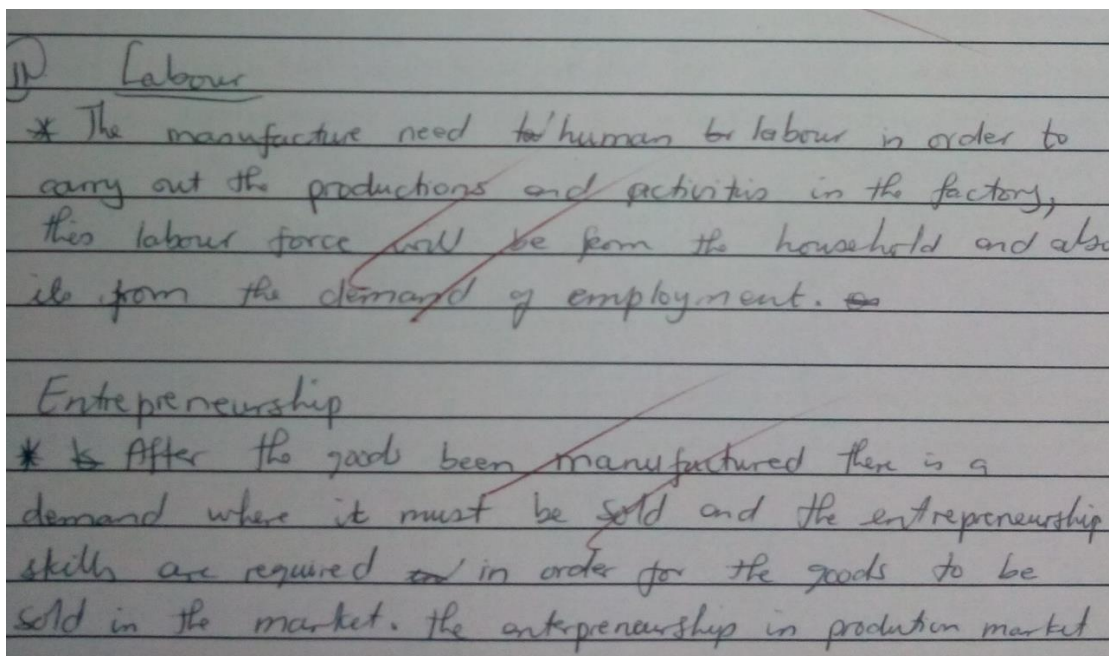 Labour
* The manufacture need human labour in order to
carry out the productions and activitis in the factory,
this labour force will be from the household and also
from the demand of employment.
Entrepreneurship
* After the goods been manufactured there is a
demand where it must be sold and the entrepreneurship
skills are required in order for the goods to be
sold in the market. the enterpreneurship in prodution market